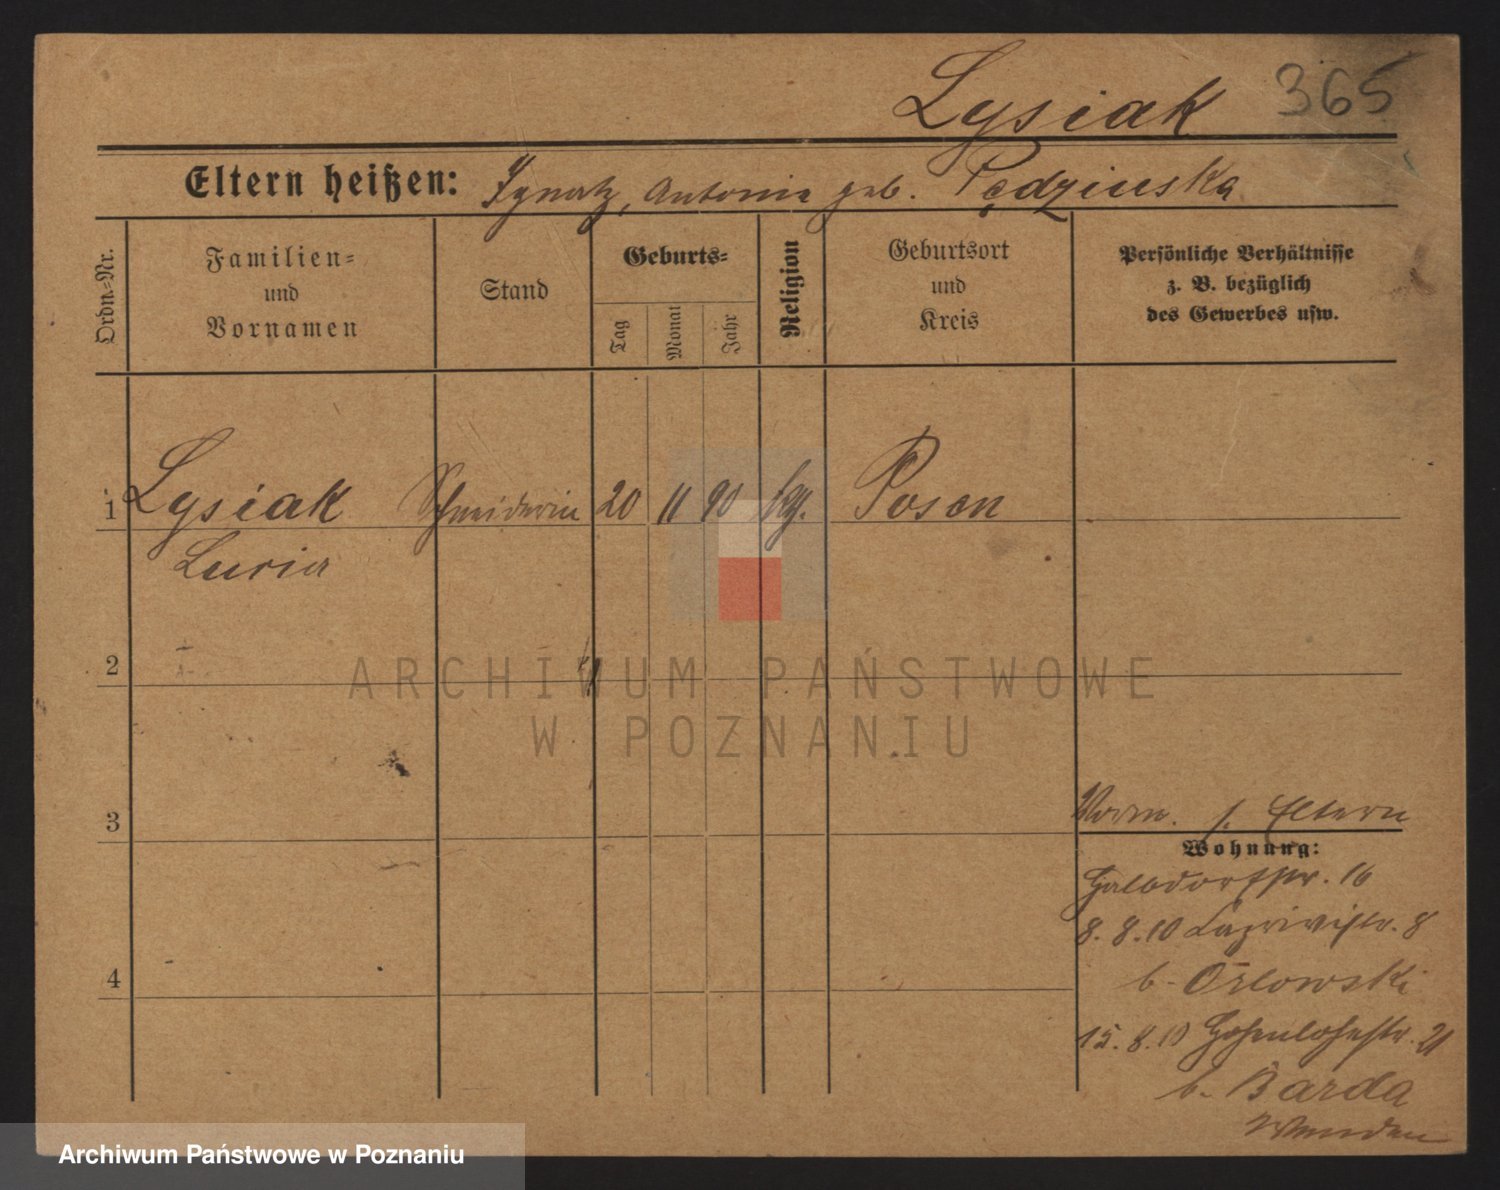 Lysiak 365
Eltern heißen: Ignatz, Antonie geb. Pędzinska
Ordn.=Nr.
Familien=
und
Vornamen
Stand
Geburts=
Tag
Monat
Jahr
Religion
Geburtsort
und
Kreis
Persönliche Verhältnisse
z. B. bezüglich
des Gewerbes usw.
1 Lysiak Schneiderin 20 11 90 kg. Posen
Lucia
2
ARCHIWUM PAŃSTWOWE
W POZNANIU
3
Vorm. s. Eltern
Wohnung:
Halbdorfstr. 16
8. 8. 10 8
b. Orlowski
4
15. 8. 10 Hohenlohestr. 21
b. Barda
Archiwum Państwowe w Poznaniu